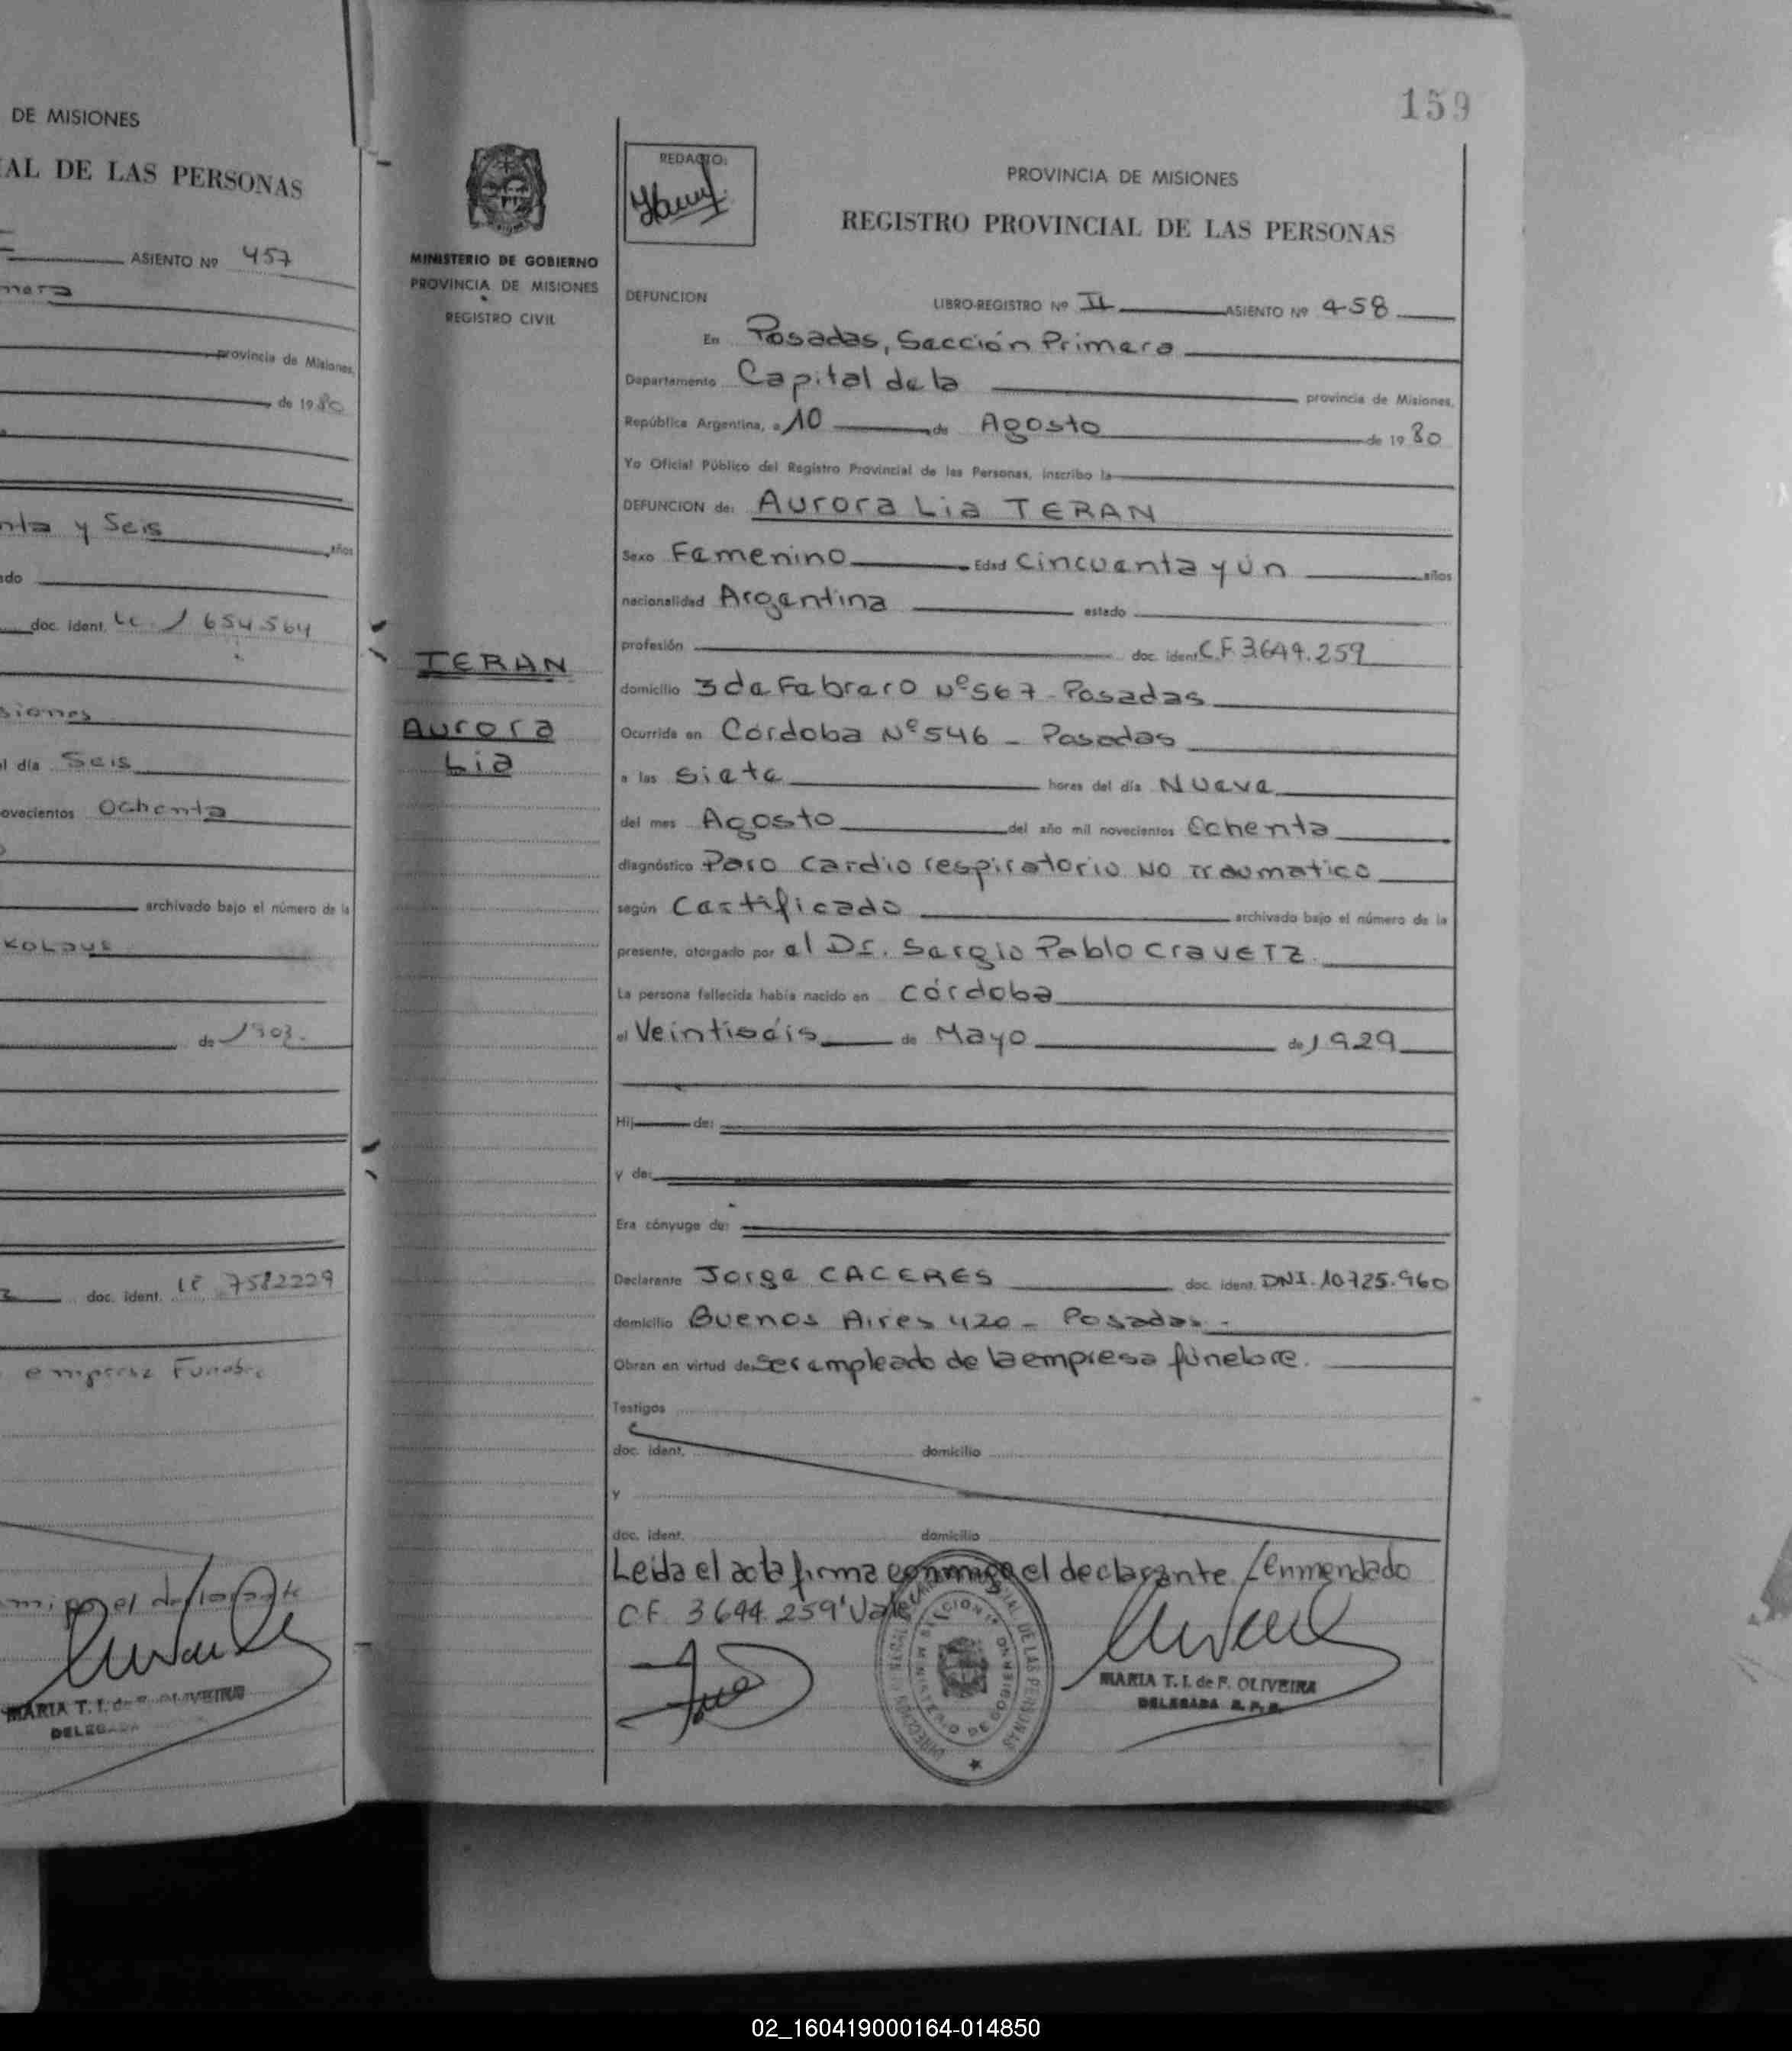 DE MISIONES
IAL DE LAS PERSONAS
ASIENTO Nº 457
mera
provincia de Misiones,
de 1980
nta y Seis años
ado
doc. ident. LC. 1654564
siones
l día Seis
ovecientos Ochenta
archivado bajo el número de la
KOLJUK
de 1903.
doc. ident. LE 7582229
empresa Funebre
migo el declarante
MARIA T. I. de F. OLIVEIRA
DELEGADA
159
MINISTERIO DE GOBIERNO
PROVINCIA DE MISIONES
REGISTRO CIVIL
TERAN
Aurora
Lia
REDACTO:
PROVINCIA DE MISIONES
REGISTRO PROVINCIAL DE LAS PERSONAS
DEFUNCION LIBRO-REGISTRO Nº II ASIENTO Nº 458
En Posadas, Sección Primera
Departamento Capital de la provincia de Misiones,
República Argentina, a 10 de Agosto de 1980
Yo Oficial Público del Registro Provincial de las Personas, inscribo la
DEFUNCION de: Aurora Lia TERAN
Sexo Femenino Edad Cincuenta y ún años
nacionalidad Argentina estado
profesión doc. ident. C.F. 3.644.259
domicilio 3 de Febrero Nº 567 - Posadas
Ocurrida en Córdoba Nº 546 - Posadas
a las Siete horas del día Nueve
del mes Agosto del año mil novecientos Ochenta
diagnóstico Paro cardio respiratorio NO Traumatico
según Certificado archivado bajo el número de la
presente, otorgado por el Dr. Sergio Pablo CRAVETZ.
La persona fallecida había nacido en córdoba
el Veintiséis de Mayo de 1929
Hij de:
y de:
Era cónyuge de:
Declarante Jorge CACERES doc. ident. DNI. 10.725.960
domicilio Buenos Aires 420 - Posadas -
Obran en virtud de Ser empleado de la empresa fúnebre.
Testigos
doc. ident. domicilio
y
doc. ident. domicilio
Leída el acta firma conmigo el declarante / Enmendado
C.F. 3644.259 "Vale
DIRECCION GENERAL DE LAS PERSONAS
SECCION 1ª
MINISTERIO DE GOBIERNO
MARIA T. I. de F. OLIVEIRA
DELEGADA R. P. P.
02_160419000164-014850